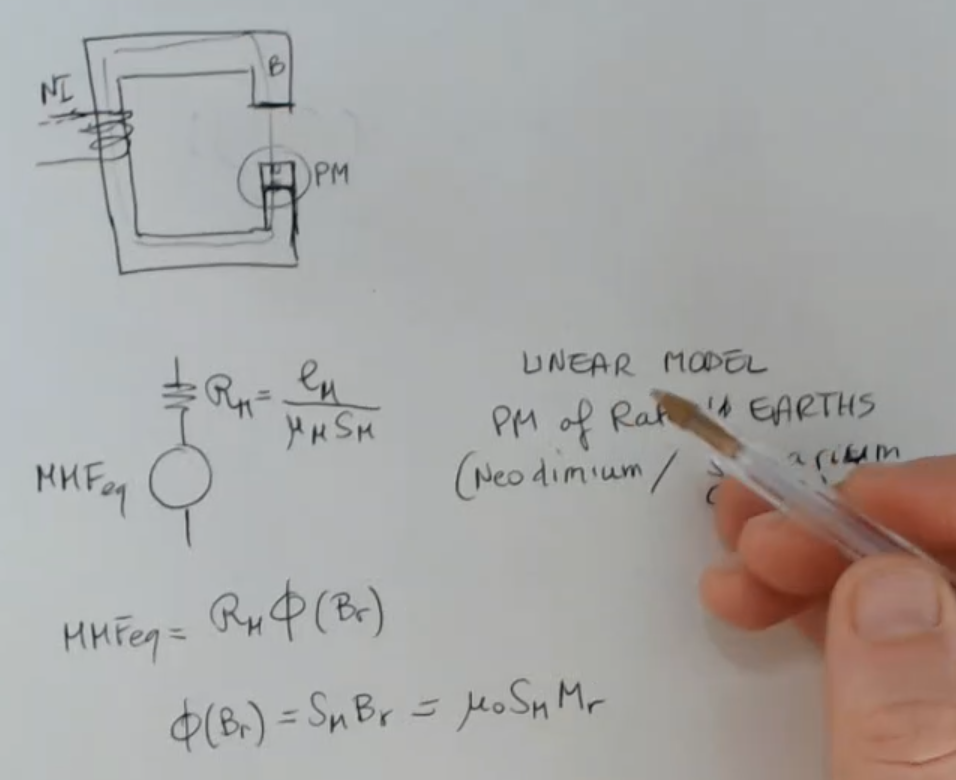 NI
B
PM
R_M = l_M / μ_M S_M
MMF_eq
LINEAR MODEL
PM of EARTHS
(Neodimium /
MMFeq = R_M ϕ(Br)
ϕ(Br) = S_M Br = μ₀ S_M Mr